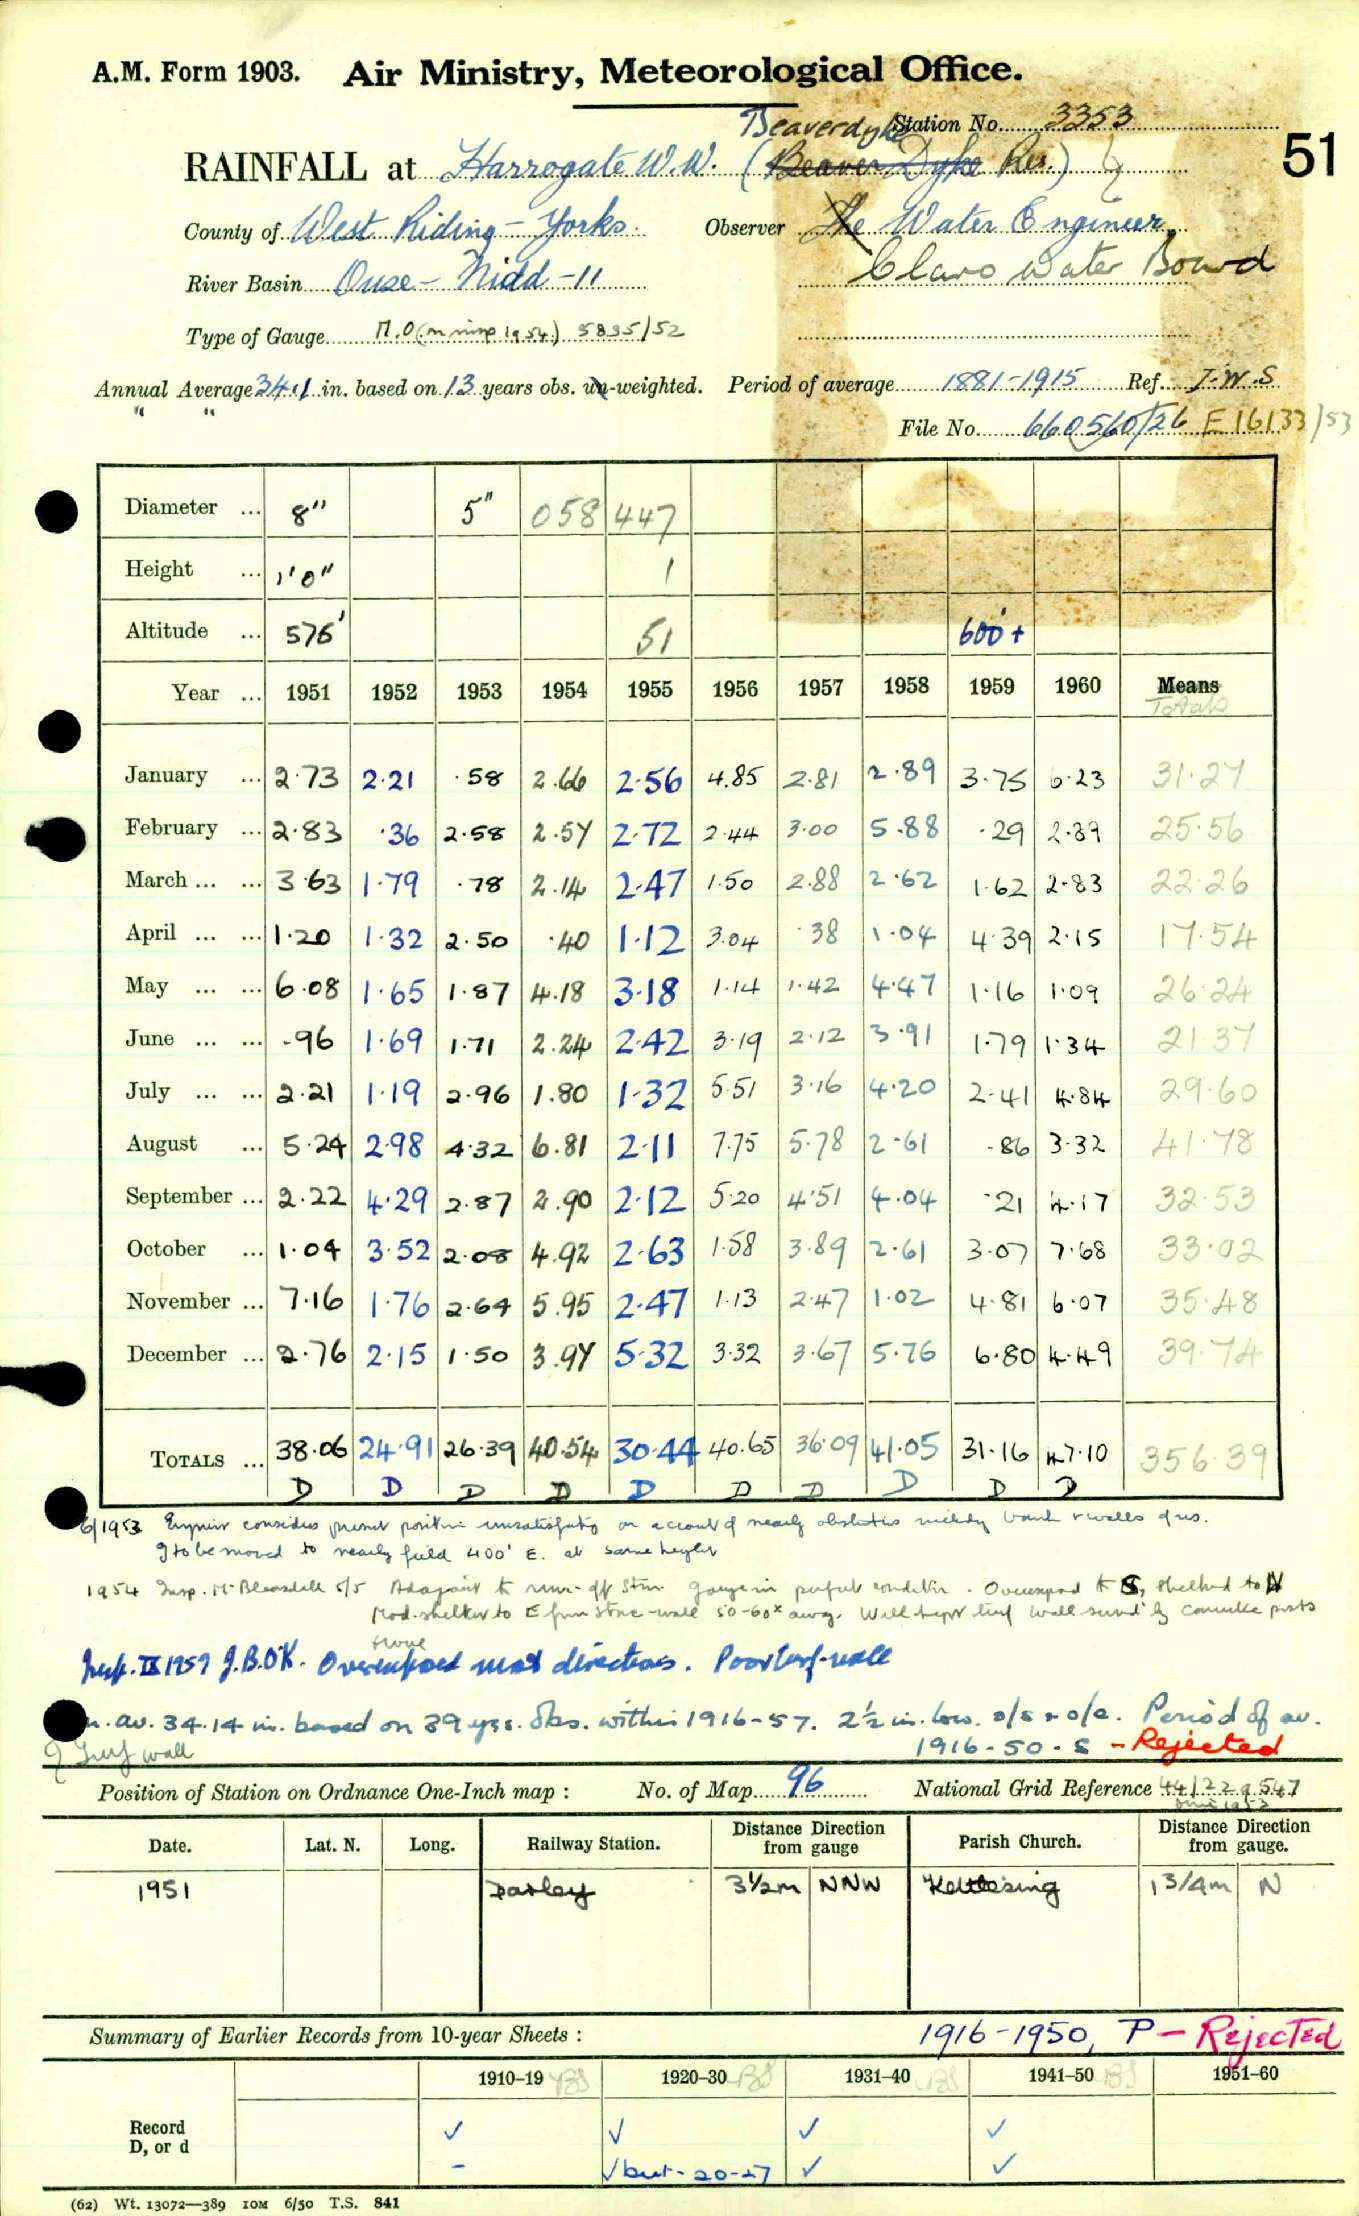 A.M. Form 1903. Air Ministry, Meteorological Office.
Station No. 3353
Beaverdyke
51
RAINFALL at Harrogate W.W. (Beaver Dyke Res.)
County of West Riding - Yorks. Observer The Water Engineer,
Claro Water Board
River Basin Ouse - Nidd - 11
Type of Gauge M.O (in insp 1954) 5835/52
Annual Average 34.1 in. based on 13 years obs. un-weighted. Period of average 1881-1915 Ref. J.W.S
" "
File No. 660560/26 E16133/53
Diameter ... 8" 5" 058 447
Height ... 1'0" 1
Altitude ... 576' 51 600'+
Year ... 1951 1952 1953 1954 1955 1956 1957 1958 1959 1960 Means
Totals
January ... 2.73 2.21 .58 2.66 2.56 4.85 2.81 2.89 3.75 6.23 31.27
February ... 2.83 .36 2.58 2.57 2.72 2.44 3.00 5.88 .29 2.89 25.56
March ... ... 3.63 1.79 .78 2.14 2.47 1.50 2.88 2.62 1.62 2.83 22.26
April ... ... 1.20 1.32 2.50 .40 1.12 3.04 .38 1.04 4.39 2.15 17.54
May ... ... 6.08 1.65 1.87 4.18 3.18 1.14 1.42 4.47 1.16 1.09 26.24
June ... ... .96 1.69 1.71 2.24 2.42 3.19 2.12 3.91 1.79 1.34 21.37
July ... ... 2.21 1.19 2.96 1.80 1.32 5.51 3.16 4.20 2.41 4.84 29.60
August ... 5.24 2.98 4.32 6.81 2.11 7.75 5.78 2.61 .86 3.32 41.78
September ... 2.22 4.29 2.87 2.90 2.12 5.20 4.51 4.04 .21 4.17 32.53
October ... 1.04 3.52 2.08 4.92 2.63 1.58 3.89 2.61 3.07 7.68 33.02
November ... 7.16 1.76 2.64 5.95 2.47 1.13 2.47 1.02 4.81 6.07 35.48
December ... 2.76 2.15 1.50 3.97 5.32 3.32 3.67 5.76 6.80 4.49 39.74
TOTALS ... 38.06 24.91 26.39 40.54 30.44 40.65 36.09 41.05 31.16 47.10 356.39
D D D D D D D D D D
6/1953 Engineer considers present position unsatisfactory on account of nearby obstacles bank & walls of res.
g to be moved to nearby field 400' E. at same height
1954 Insp. Mr Bleasdell 5/5 Adjacent to run-off stm. gauge in perfect condition. Overexposed to S, sheltered to N
Mod. shelter to E from stone-wall 50-60x away. Will turf wall by posts
Insp. IX 1959 J.B.O'K. Overexposed most directions. Poor turf-wall
n. av. 34.14 in. based on 39 yrs. obs. within 1916-57. 2½ in. low. o/s & o/e. Period of av.
g Turf wall
1916-50-S - Rejected
Position of Station on Ordnance One-Inch map : No. of Map 96 National Grid Reference 44/229547
Date. Lat. N. Long. Railway Station. Distance from Direction gauge Parish Church. Distance from Direction gauge.
1951 Darley 3½m NNW Kettlesing 1 3/4m N
Summary of Earlier Records from 10-year Sheets : 1916-1950, P - Rejected
1910-19 BS 1920-30 BS 1931-40 BS 1941-50 BS 1951-60
Record ✓ ✓ ✓ ✓
D, or d - ✓ but - 20-27 ✓ ✓
(62) Wt. 13072—389 IOM 6/50 T.S. 841